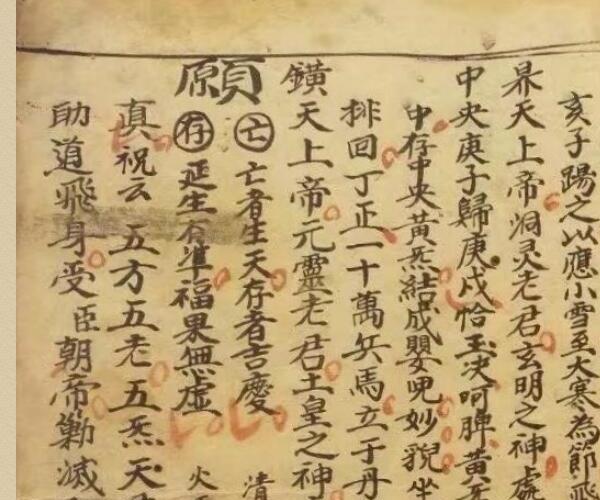 亥子踢之以應小雪至大寒為節飛
昦天上帝洞灵老君玄明之神處
中央庚子歸庚戌恰玉决呵脾黄
中存中央黄炁結成嬰兒妙貌坐
排回丁正一十萬兵馬立于丹
鐄天上帝元靈老君土皇之神
願
亡 亡者生天存者吉慶 清
存 延生有準福果無虛 火
真祝云 五方五老五炁天
助道飛身受臣朝帝勦滅